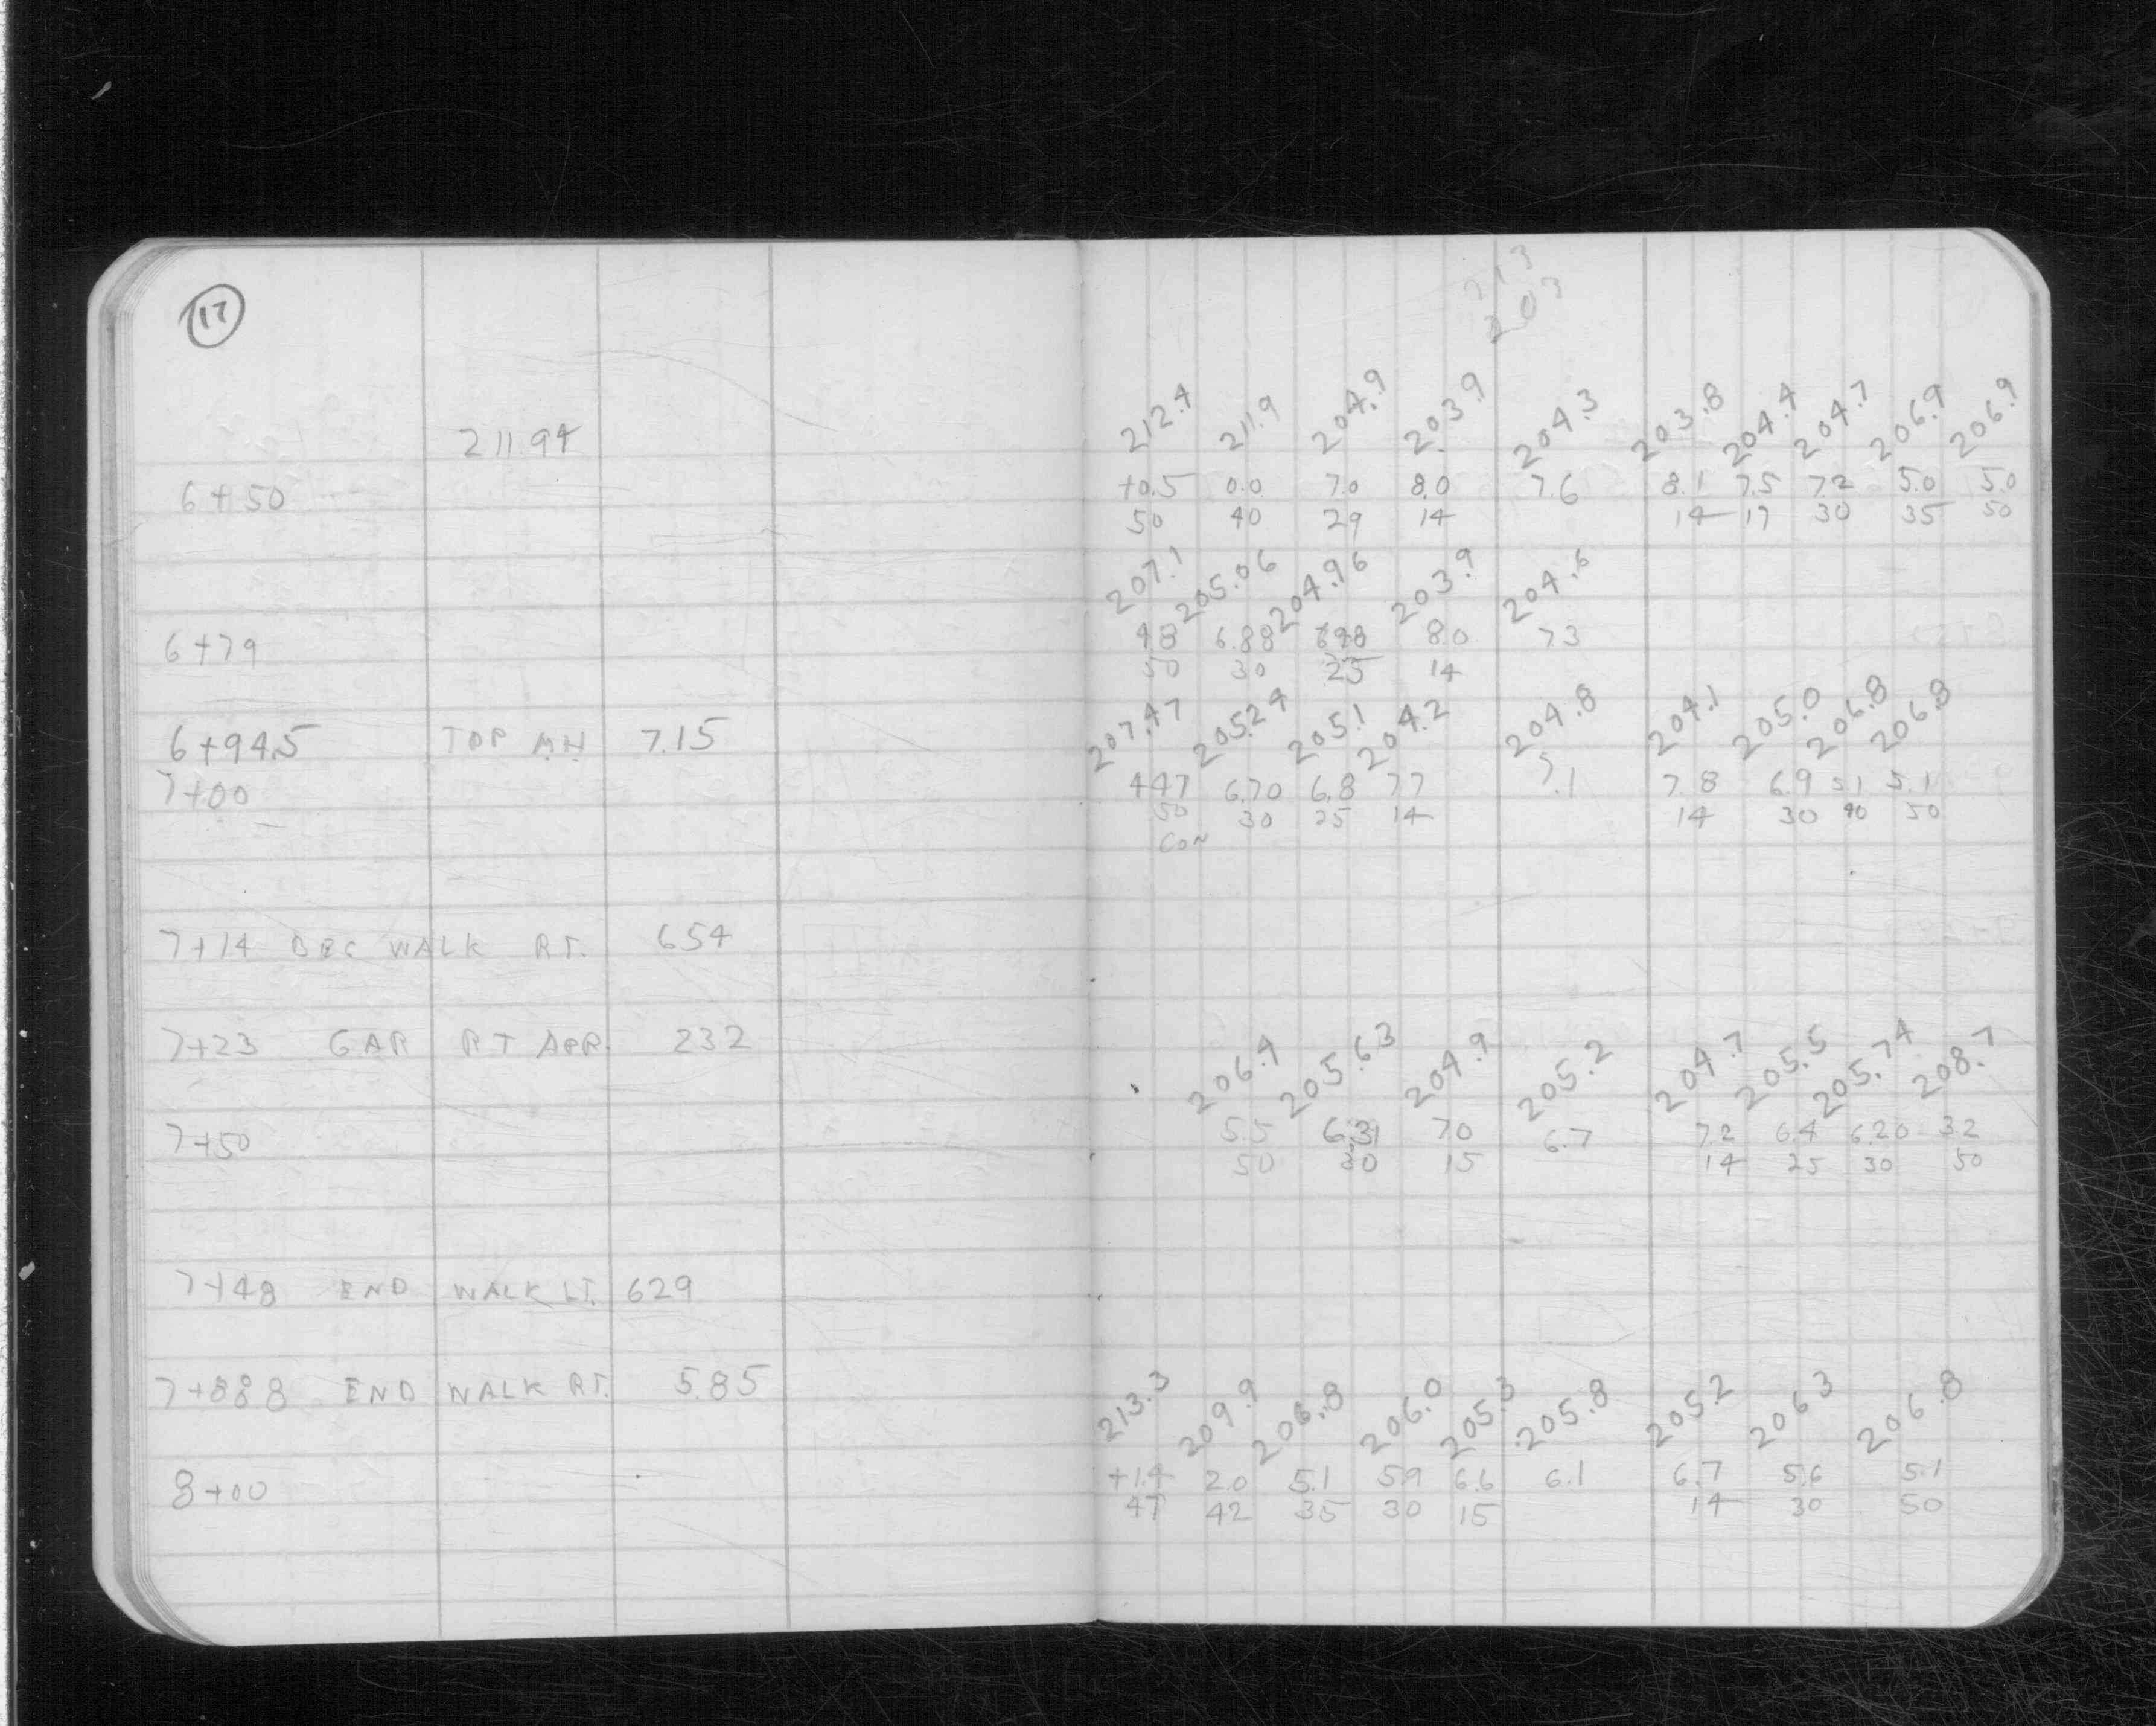 17
211.94
6+50
6+79
6+94.5 TOP MH 7.15
7+00
7+14 BEG WALK RT. 654
7+23 GAR RT APR. 232
7+50
7+48 END WALK LT. 629
7+888 END WALK RT. 5.85
8+00
203
212.4 211.9 204.9 203.9 204.3 203.8 204.4 204.7 206.9 206.9
+0.5 0.0 7.0 8.0 7.6 8.1 7.5 7.2 5.0 5.0
50 40 29 14 14 17 30 35 50
207.1 205.06 204.96 203.9 204.6
48 6.88 698 8.0 73
50 30 25 14
207.47 205.24 205.1 204.2 204.8 204.1 205.0 206.8 206.8
447 6.70 6.8 77 7.1 7.8 6.9 5.1 5.1
50 30 25 14 14 30 40 50
CON
206.4 205.63 204.9 205.2 204.7 205.5 205.74 208.7
5.5 6.31 70 6.7 7.2 6.4 6.20 32
50 30 15 14 25 30 50
213.3 209.9 206.8 206.0 205.3 205.8 205.2 206.3 206.8
+1.4 2.0 5.1 5.9 6.6 6.1 6.7 5.6 5.1
47 42 35 30 15 14 30 50